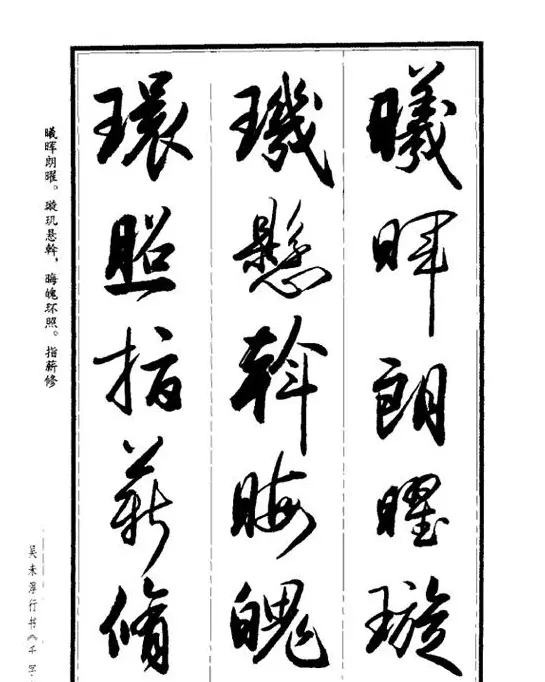 曦暉朗曜璇
璣懸斡晦魄
環照指薪脩
曦晖朗曜。璇玑悬斡，晦魄环照。指薪修
吴未淳行书《千字